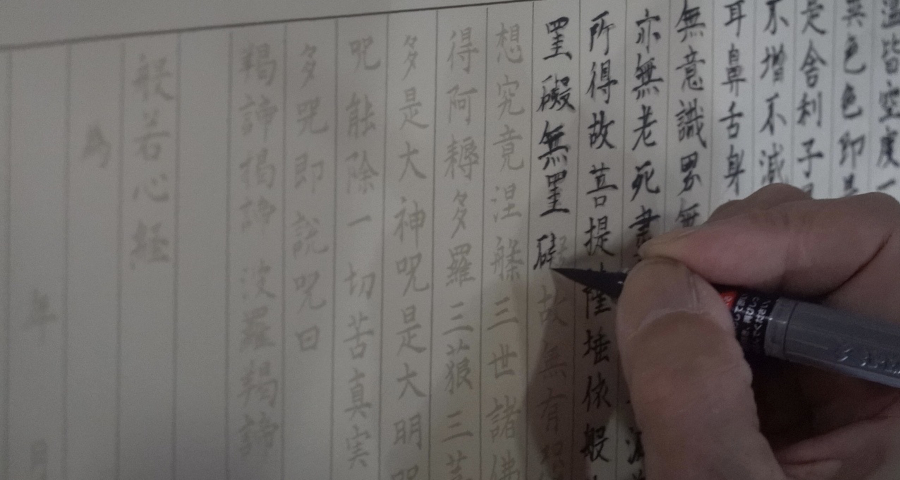 皆空度一
異色色即是
是舎利子是
不増不減
耳鼻舌身
無意識界無
亦無老死盡
所得故菩提薩埵依般
罣礙無罣礙故無有恐
想究竟涅槃三世諸佛
得阿耨多羅三藐三菩
多是大神呪是大明呪
呪能除一切苦真実
多呪即説呪曰
羯諦羯諦波羅羯諦
般若心経
為
年 月